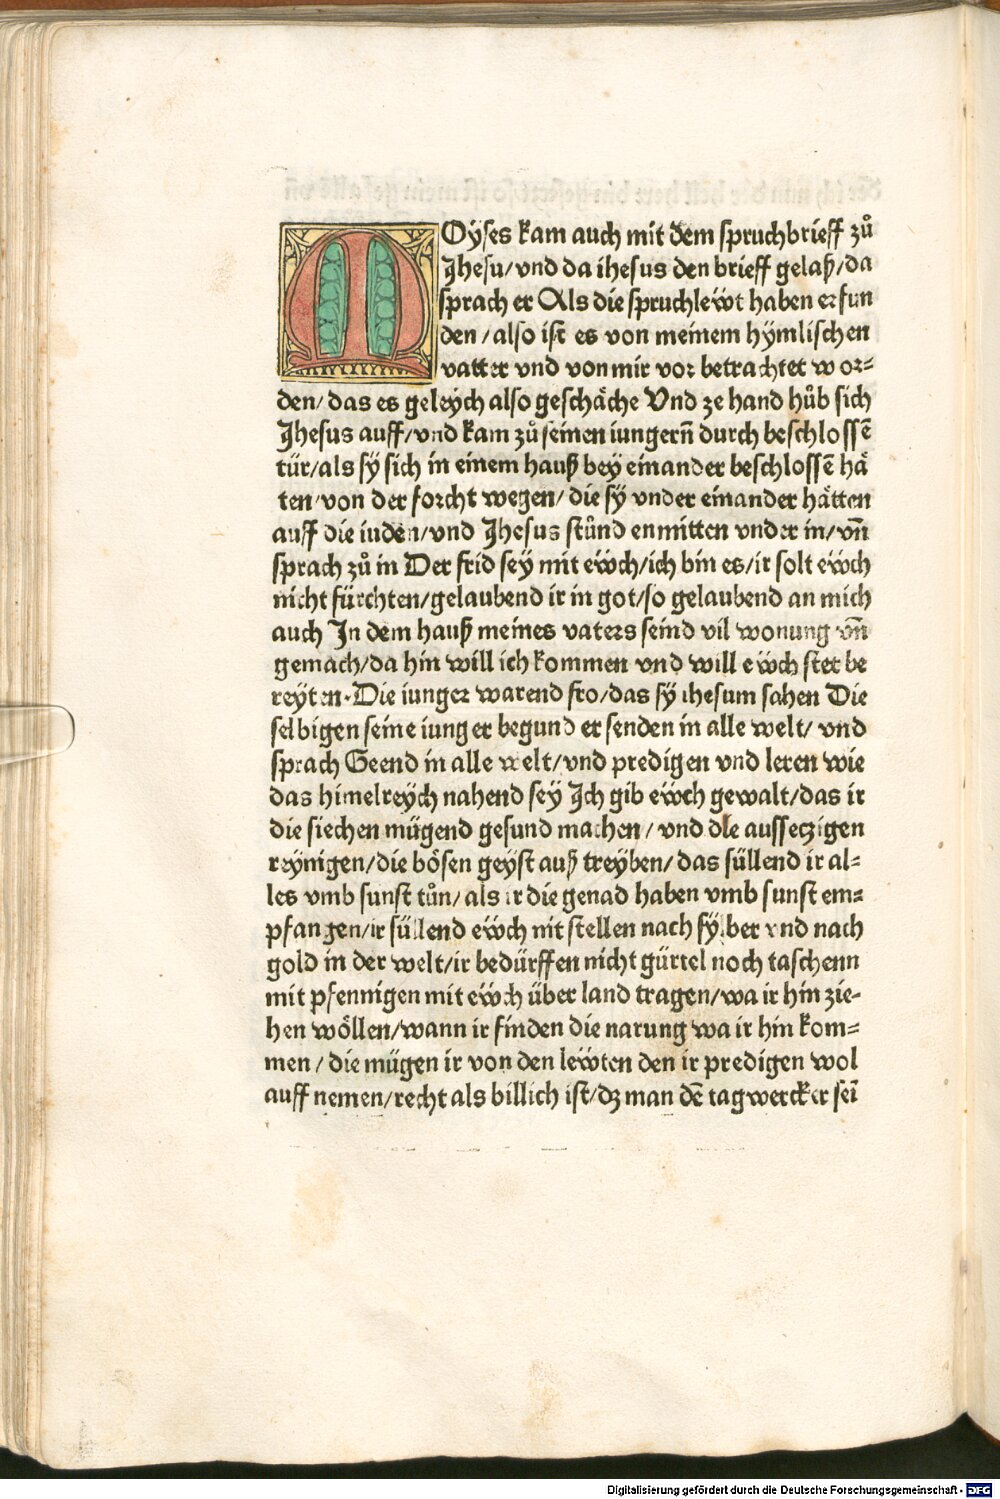 MOyses kam auch mit dem spruchbrieff zů
Jhesu/vnd da ihesus den brieff gelaß/da
sprach er Als die spruchlewt haben erfun
den/also ist es von meinem hymlischen
vatter vnd von mir vor betrachtet wor=
den/das es geleych also geschäche Vnd ze hand hůb sich
Jhesus auff/vnd kam zů seinen iungern̄ durch beschlossē
tür/als sy sich in einem hauß bey einander beschlossē hä
ten/von der forcht wegen/die sy vnder einander hätten
auff die iuden/vnd Jhesus stůnd enmitten vnder in/vn̄
sprach zů in Der frid sey mit ewch/ich bin es/ir solt ewch
nicht fürchten/gelaubend ir in got/so gelaubend an mich
auch In dem hauß meines vaters seind vil wonung vn̄
gemach/da hin will ich kommen vnd will ewch stet be
reyten·Die iunger warend fro/das sy ihesum sahen Die
selbigen seine iunger begund er senden in alle welt/vnd
sprach Geend in alle welt/vnd predigen vnd leren wie
das himelreych nahend sey Ich gib ewch gewalt/das ir
die siechen mügend gesund machen/vnd die aussetzigen
reynigen/die bösen geyst auß treyben/das süllend ir al=
les vmb sunst tůn/als ir die genad haben vmb sunst em=
pfangen/ir süllend ewch nit stellen nach sylber vnd nach
gold in der welt/ir bedürffen nicht gürtel noch taschenn
mit pfennigen mit ewch über land tragen/wa ir hin zie-
hen wöllen/wann ir finden die narung wa ir hin kom=
men/die mügen ir von den lewten den ir predigen wol
auff nemen/recht als billich ist/dz man dē tagwercker sei
Digitalisierung gefördert durch die Deutsche Forschungsgemeinschaft - DFG